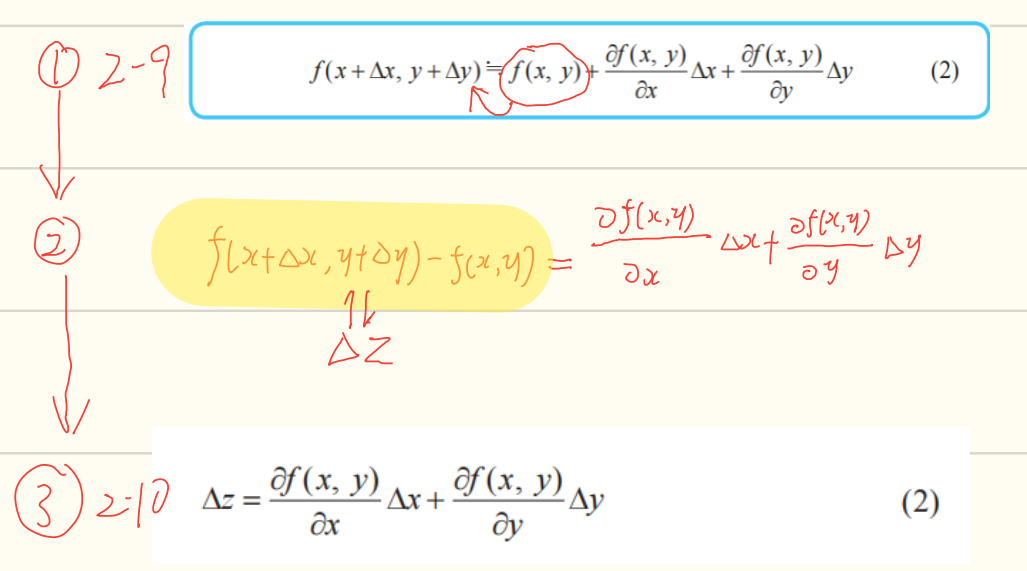 ① 2-9 f(x+Δx, y+Δy)≒f(x, y)+∂f(x, y)/∂x Δx+∂f(x, y)/∂y Δy (2)
② f(x+Δx, y+Δy)-f(x,y)=∂f(x,y)/∂x Δx+∂f(x,y)/∂y Δy
Δz
③ 2-10 Δz=∂f(x, y)/∂x Δx+∂f(x, y)/∂y Δy (2)